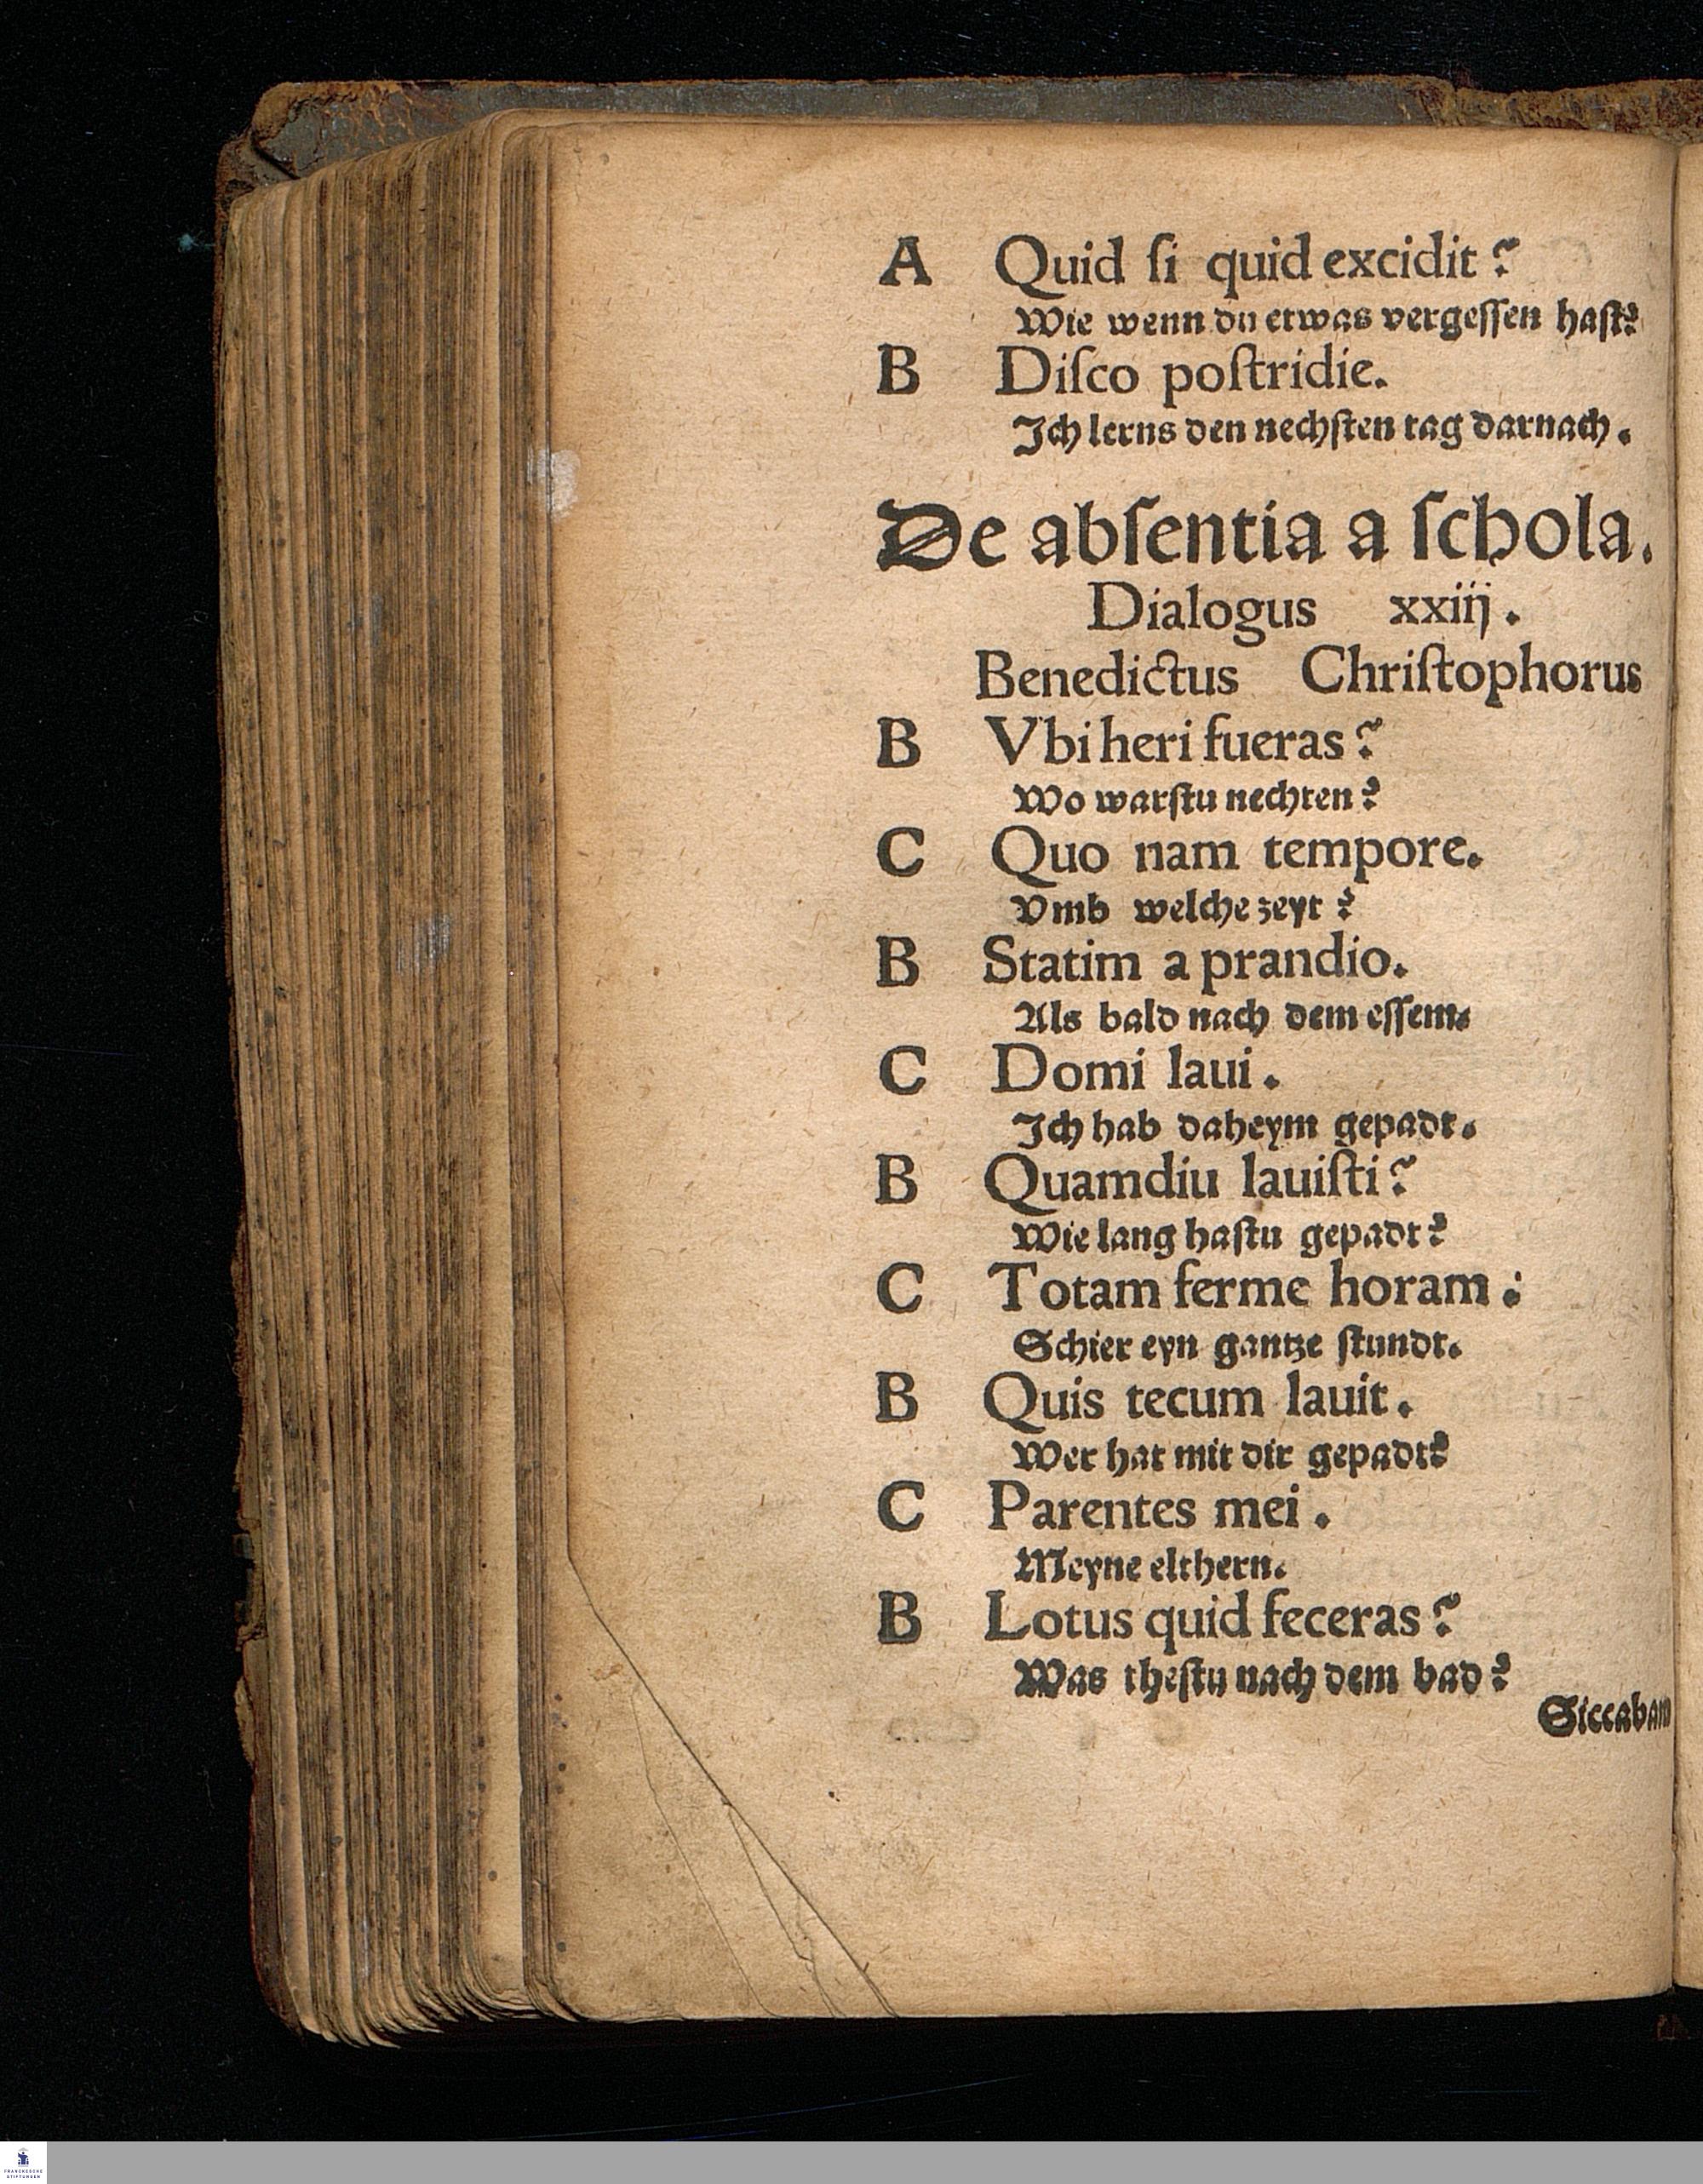 A Quid ſi quid excidit?
Wie wenn du etwas vergeſſen haſt?
B Diſco poſtridie.
Ich lerns den nechſten tag darnach.
De abſentia a ſchola.
Dialogus xxiij.
Benedictus Chriſtophorus
B Vbi heri fueras?
Wo warſtu nechten?
C Quo nam tempore.
Vmb welche zeyt?
B Statim a prandio.
Als bald nach dem eſſem.
C Domi laui.
Ich hab daheym gepadt.
B Quamdiu lauiſti?
Wie lang haſtu gepadt?
C Totam ferme horam:
Schier eyn gantze ſtundt.
B Quis tecum lauit.
Wer hat mit dir gepadt?
C Parentes mei.
Meyne elthern.
B Lotus quid feceras?
Was theſtu nach dem bad?
Siccabam
FRANCKESCHE
STIFTUNGEN